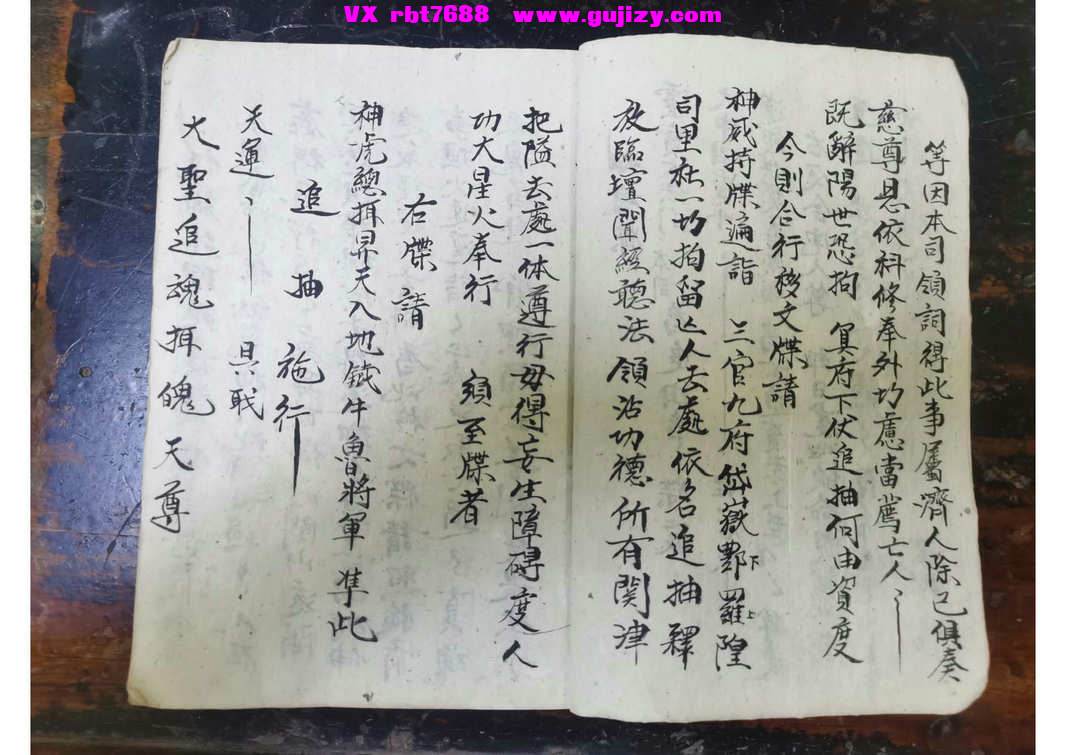 VX rbt7688 www.gujizy.com
等因本司領詞得此事屬濟人除已俱奏
慈尊恩依科修奉外切慮當薦亡人
既辭陽世恐拘 冥府下伏追抽何由資度
今則合行移文牒請
神威持牒遍詣 三官九府岱嶽酆下羅上隍
司里社一切拘留亡人去處依名追抽釋
放臨壇聞經聽法領沾功德所有関津
把隘去處一体遵行毋得妄生障碍度人
功大星火奉行 須至牒者
右牒請
神虎總揖昇天入地鉄牛魯將軍 準此
追抽 施行
天運 具職
大聖追魂揖魄天尊